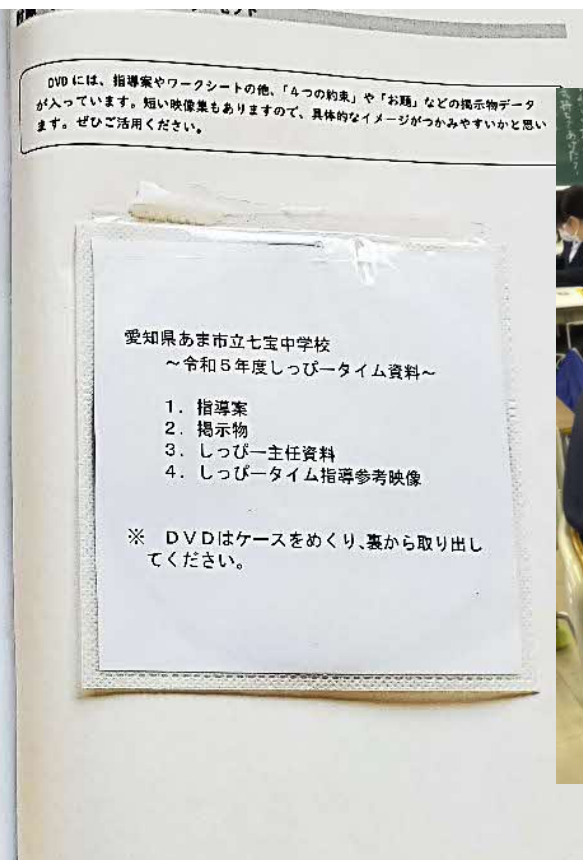 DVDには、指導案やワークシートの他、「4つの約束」や「お題」などの掲示物データ
が入っています。短い映像集もありますので、具体的なイメージがつかみやすいかと思い
ます。ぜひご活用ください。
愛知県あま市立七宝中学校
～令和5年度しっぴータイム資料～
1. 指導案
2. 掲示物
3. しっぴー主任資料
4. しっぴータイム指導参考映像
※ DVDはケースをめくり、裏から取り出し
てください。